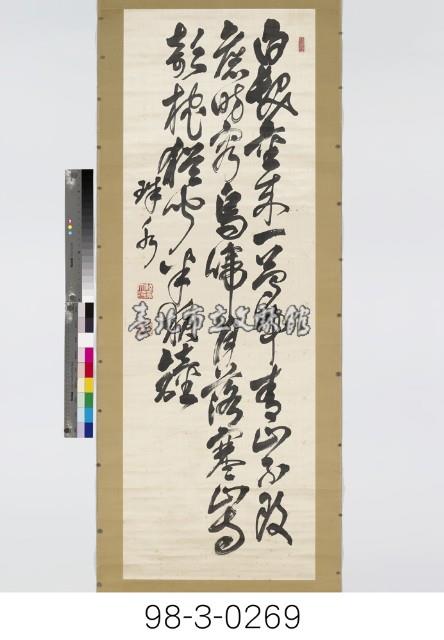 白髮重來一夢中青山不改
舊時容烏啼月落寒山寺
欹枕猶聞半夜鐘
臺北市立文獻館
98-3-0269